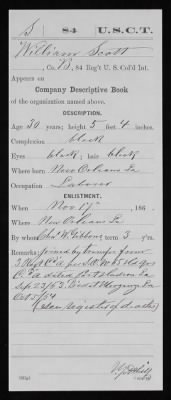 S 84 U.S.C.T.
William Scott
, Co. B, 84 Reg't U. S. Col'd Inf.
Appears on
Company Descriptive Book
of the organization named above.
DESCRIPTION.
Age 30 years; height 5 feet 4 inches.
Complexion black
Eyes black; hair black
Where born New Orleans La
Occupation Laborer
ENLISTMENT.
When Nov 17, 186
Where New Orleans La
By whom Chas W. Gibbons; term 3 y'rs.
Remarks: Joined by transfer from
3 Reg't C d'A per S.O. No
C d'A dated Port Hudson La
Sep 23/63. Died at Morganza La
Oct 5/64
(See register of deaths)
Copyist.